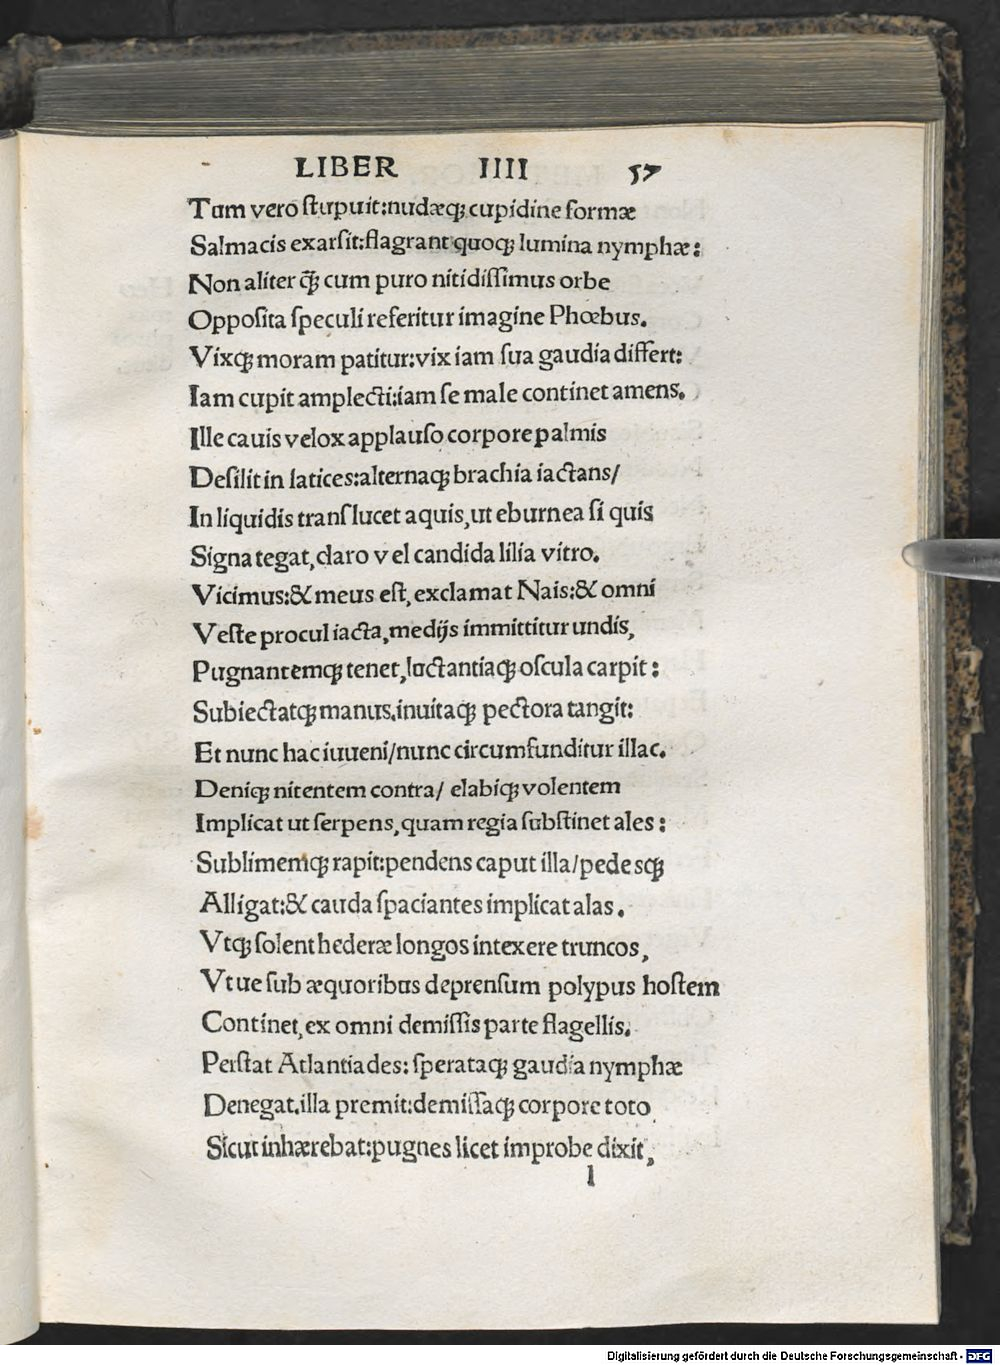 LIBER IIII 57
Tum vero ſtupuit:nudæq; cupidine formæ
Salmacis exarſit:flagrant quoq; lumina nymphæ:
Non aliter q̃; cum puro nitidiſſimus orbe
Oppoſita ſpeculi referitur imagine Phœbus.
Vixq; moram patitur:vix iam ſua gaudia differt:
Iam cupit amplecti:iam ſe male continet amens.
Ille cauis velox applauſo corpore palmis
Deſilit in latices:alternaq; brachia iactans/
In liquidis tranſlucet aquis,ut eburnea ſi quis
Signa tegat,claro vel candida lilia vitro.
Vicimus:& meus eſt, exclamat Nais:& omni
Veſte procul iacta,medijs immittitur undis,
Pugnantemq; tenet,luctantiaq; oſcula carpit:
Subiectatq; manus.inuitaq; pectora tangit:
Et nunc hac iuueni/nunc circumfunditur illac.
Deniq; nitentem contra/ elabiq; volentem
Implicat ut ſerpens,quam regia ſubſtinet ales:
Sublimemq; rapit:pendens caput illa/pedesq;
Alligat:& cauda ſpaciantes implicat alas.
Vtq; ſolent hederæ longos intexere truncos,
Vtue ſub æquoribus deprenſum polypus hoſtem
Continet,ex omni demiſſis parte flagellis.
Perſtat Atlantiades: ſperataq; gaudia nymphæ
Denegat.illa premit:demiſſaq; corpore toto
Sicut inhærebat:pugnes licet improbe dixit,
l
Digitalisierung gefördert durch die Deutsche Forschungsgemeinschaft - DFG